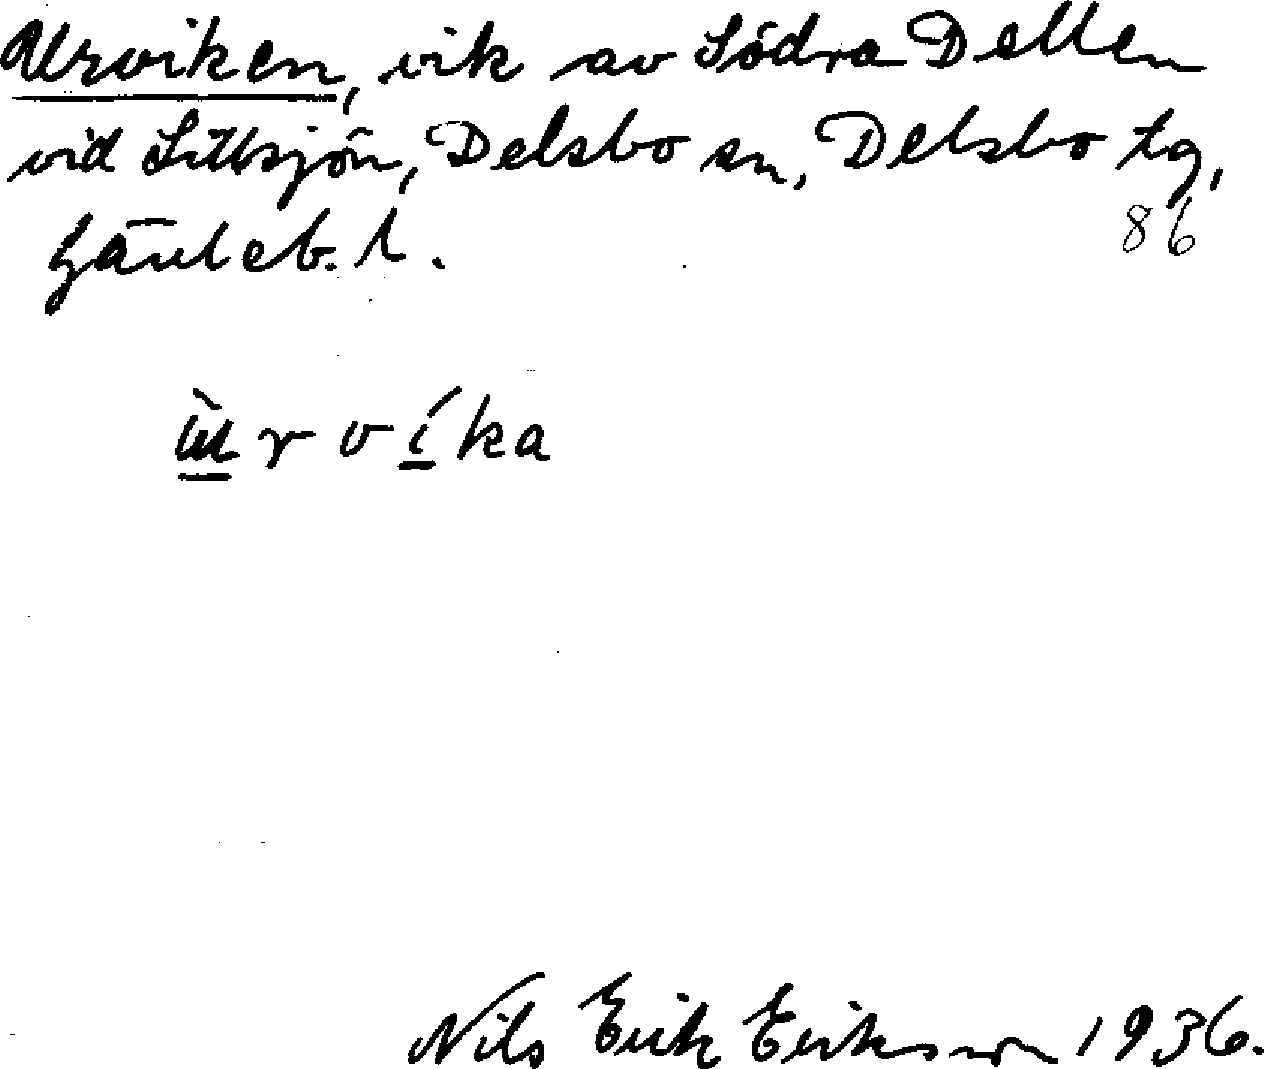 Urviken, vik av Södra Dellen
vid Sillsjön, Delsbo sn, Delsbo tg,
Gävleb. l.
86
ùrvíka
Nils Erik Eriksson 1936.